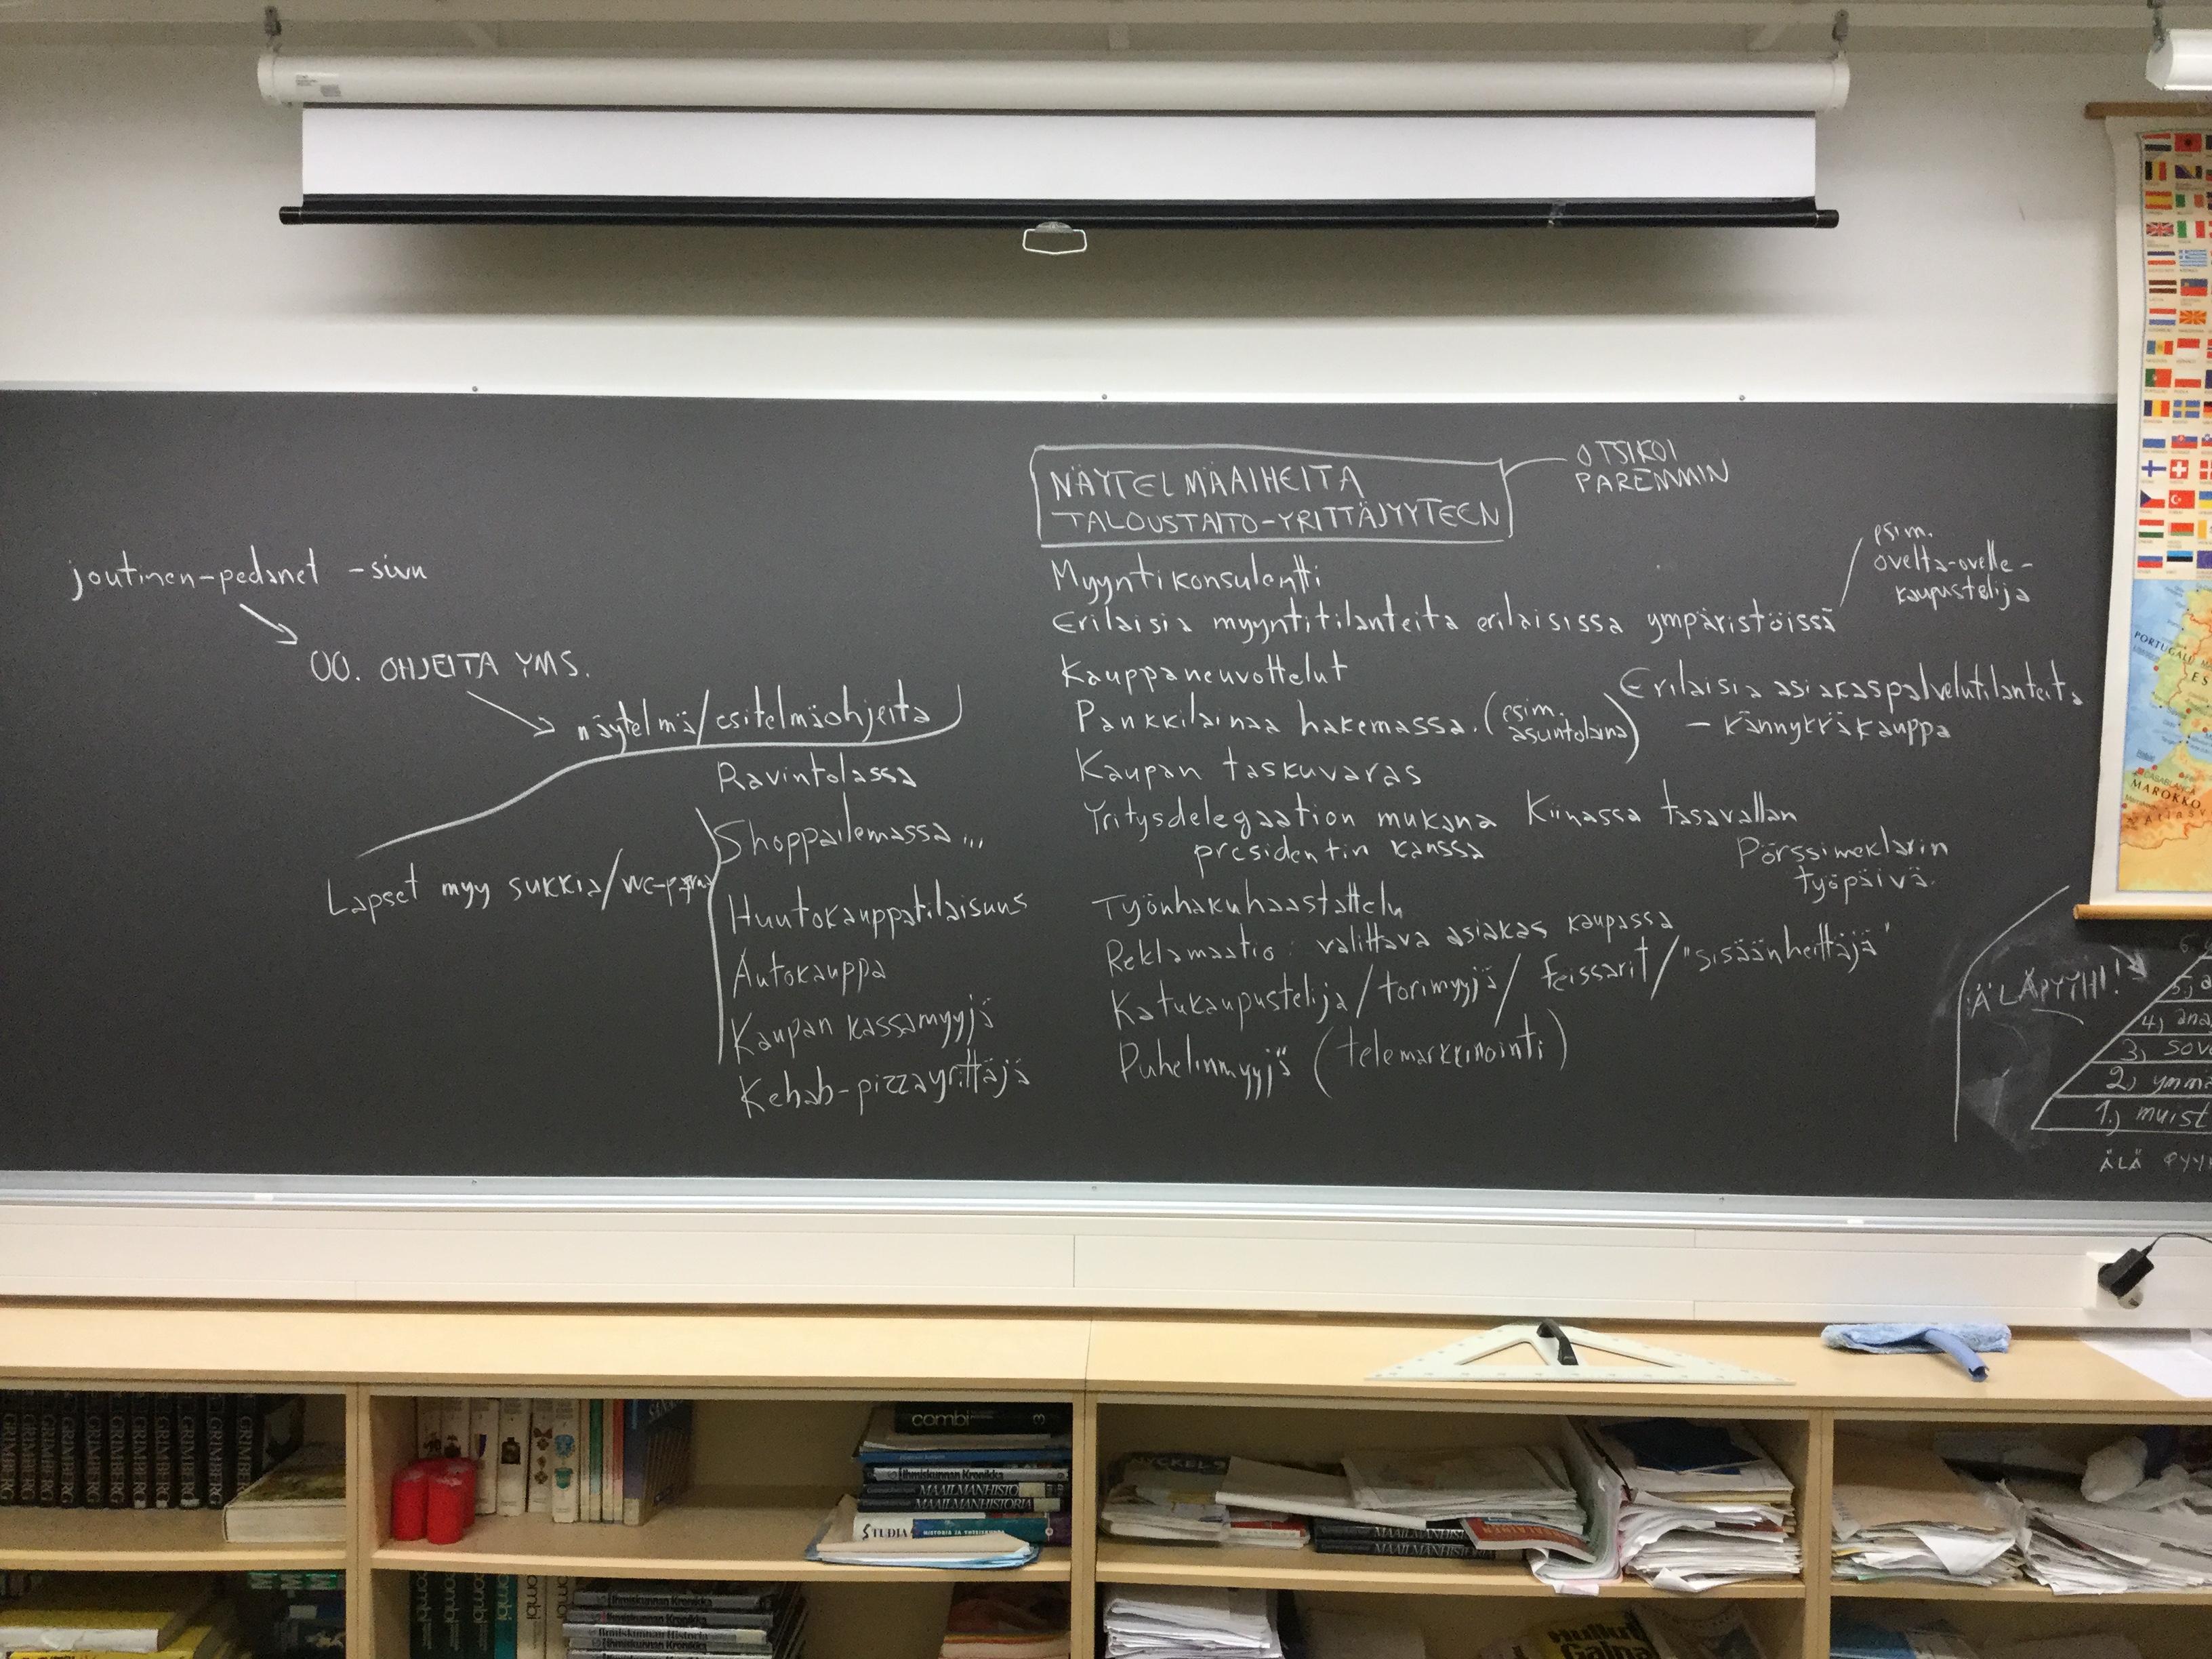 NÄYTELMÄAIHEITA
TALOUSTAITO-YRITTÄJYYTEEN
OTSIKOI
PAREMMIN
joutinen-pedanet -sivu
00. OHJEITA YMS.
näytelmä/esitelmäohjeita
Ravintolassa
Shoppailemassa...
Lapset myy sukkia/wc-
Huutokauppatilaisuus
Autokauppa
Kaupan kassamyyjä
Kebab-pizzayrittäjä
Myyntikonsulentti
Erilaisia myyntitilanteita erilaisissa ympäristöissä
esim.
ovelta-ovelle-
kaupustelija
Kauppaneuvottelut
Pankkilainaa hakemassa. (esim.
asuntolaina)
Erilaisia asiakaspalvelutilanteita
- kännykkäkauppa
Kaupan taskuvaras
Yritysdelegaation mukana Kiinassa tasavallan
presidentin kanssa
Pörssimeklarin
työpäivä.
Työnhakuhaastattelu
Reklamaatio: valittava asiakas kaupassa
Katukaupustelija/torimyyjä/feissarit/"sisäänheittäjä"
Puhelinmyyjä (telemarkkinointi)
ÄLÄ PYYHI!
6.
5.) a
4.) ana
3.) sov
2.) ymmä
1.) muist
ÄLÄ PYY
PORTUGALI
ES
CASABLANCA
MAROKKO
Atlas
GRIMBERG
GRIMBERG
GRIMBERG
GRIMBERG
GRIMBERG
GRIMBERG
GRIMBERG
GRIMBERG
GRIMBERG
combi 3
Ihmiskunnan Kronikka
MAAILMANHISTO
MAAILMANHISTORIA
STUDIA HISTORIA JA YHTEISKUNTA
MAAILMANHIST
MAAILMANHIST
ombi
combi
combi
ombi
Ihmiskunnan Kronikka
Ihmiskunnan Kronikka
Ihmiskunnan Historia
Ihmiskunnan Kronikka